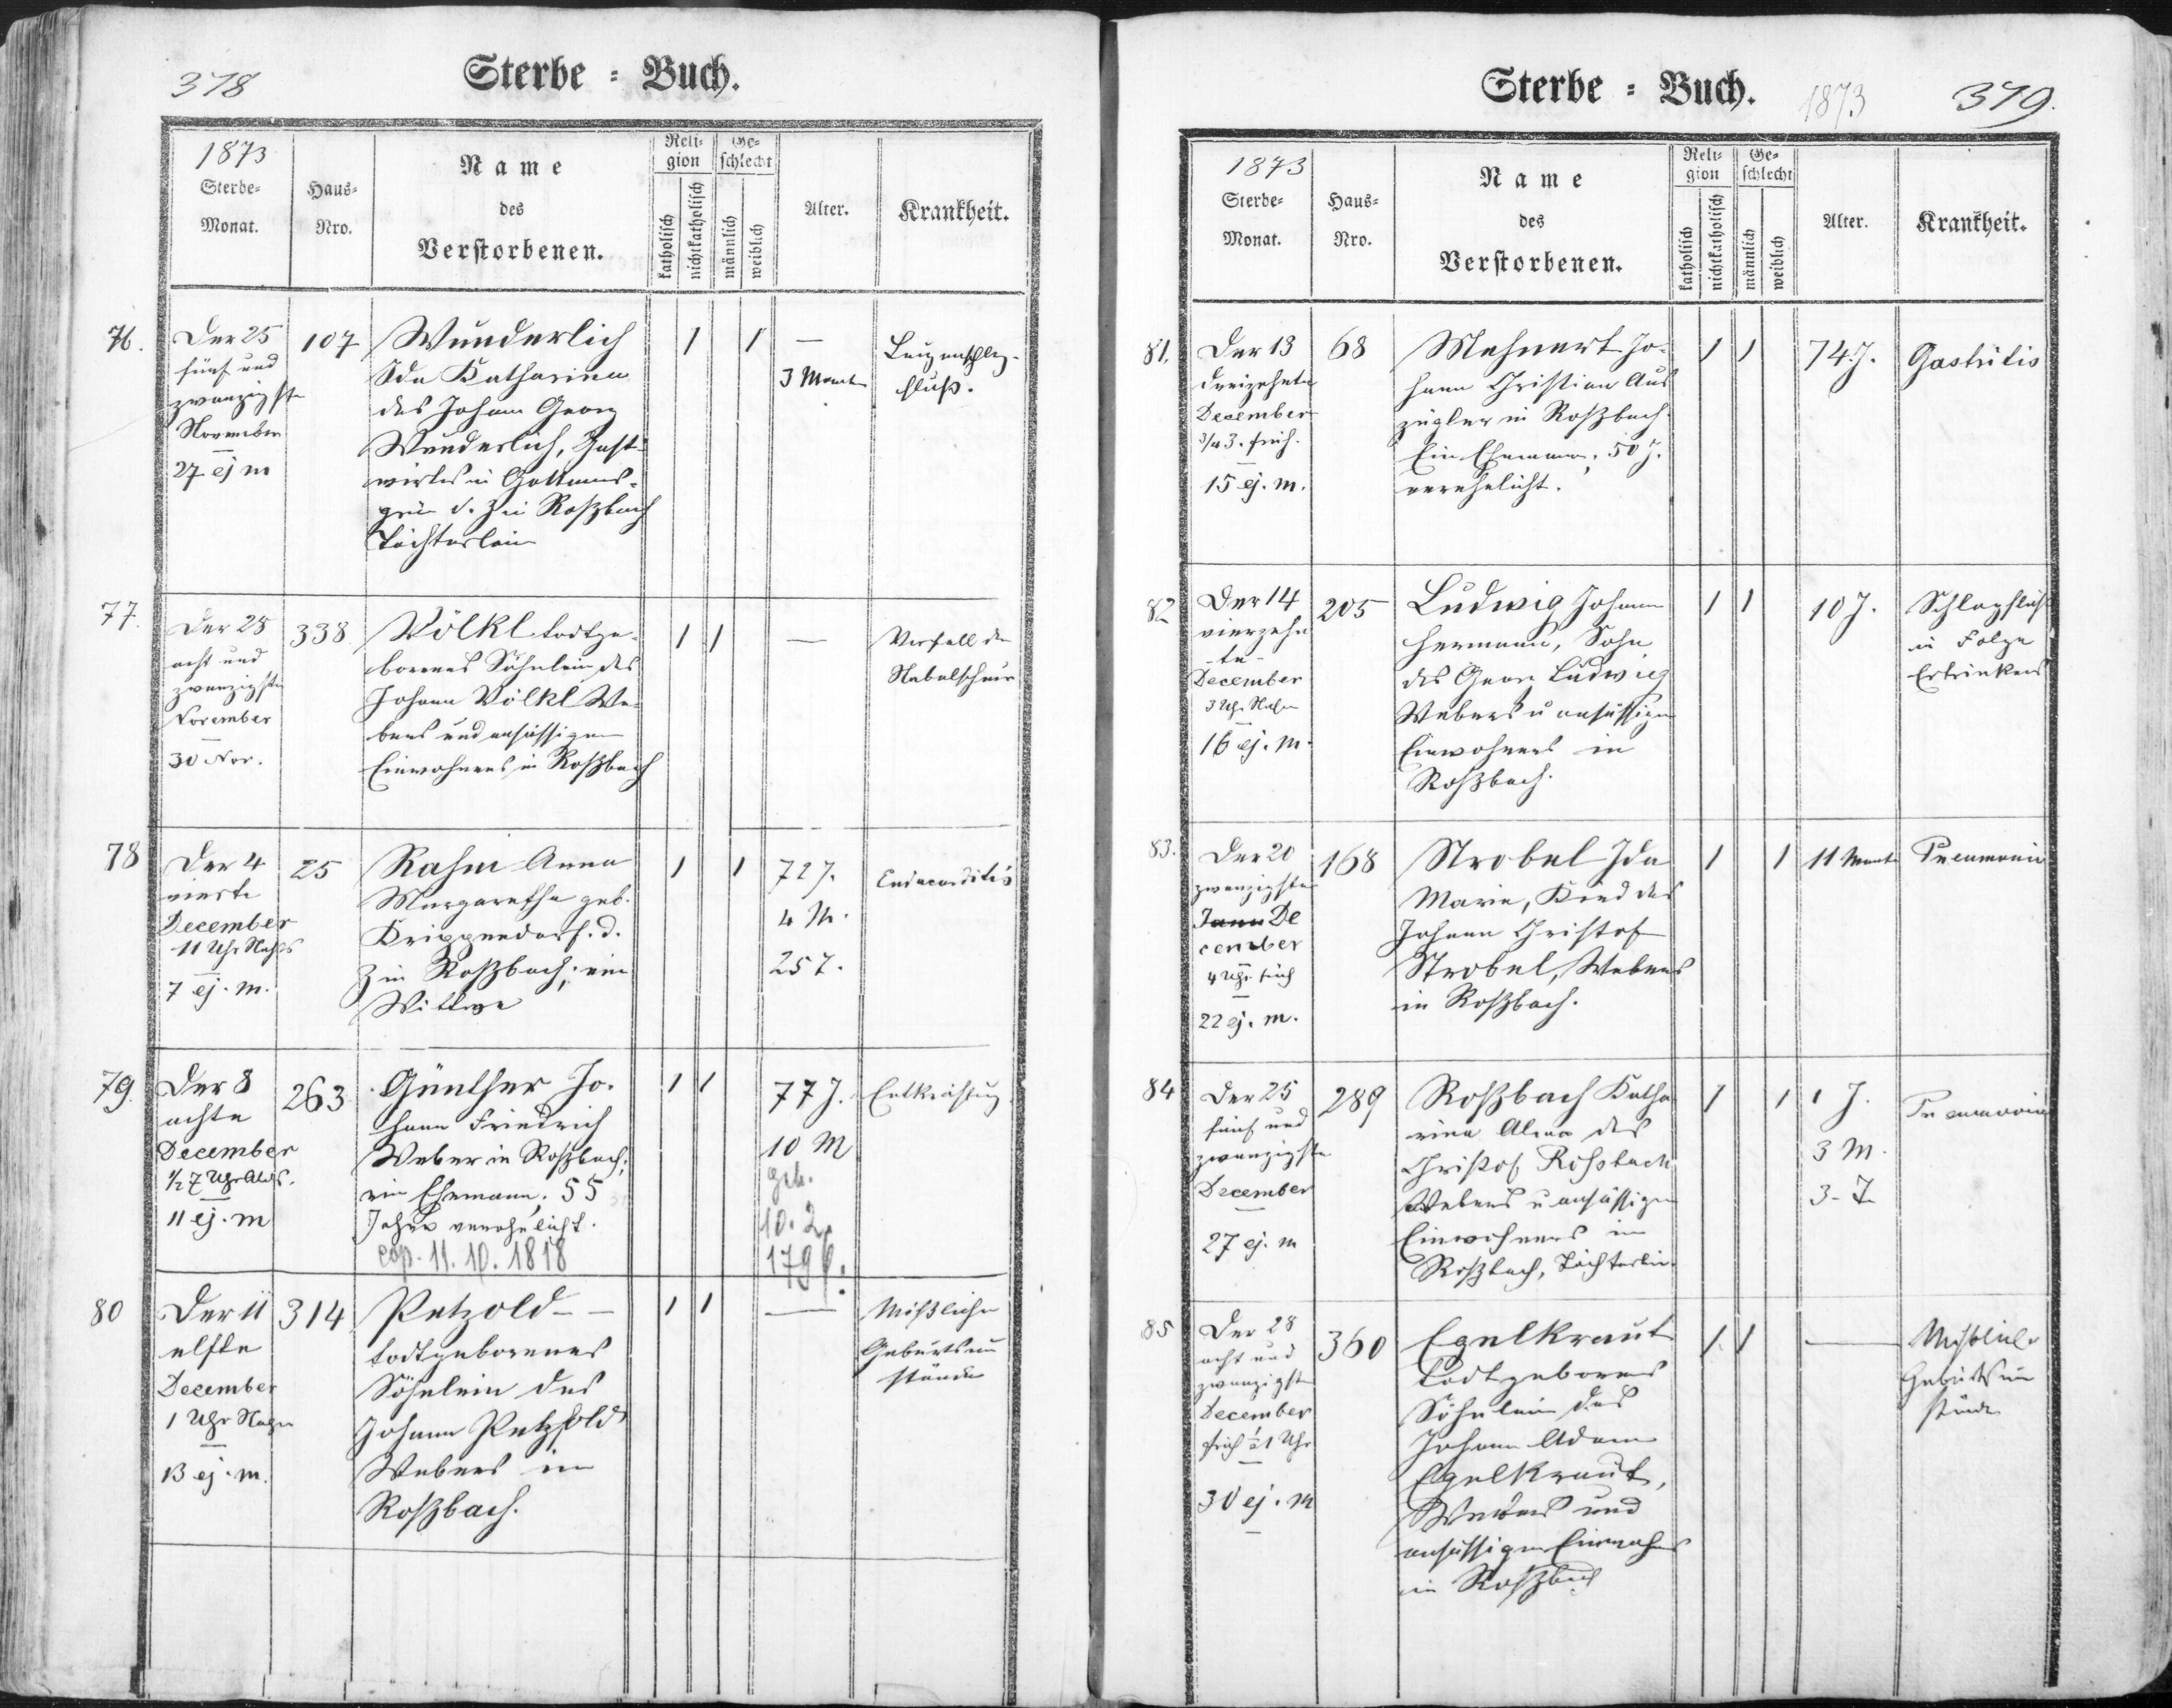 378
Sterbe = Buch.
1873
Sterbe-
Monat.
Haus-
Nro.
Name
des
Verstorbenen.
Reli-
gion
katholisch
nichtkatholisch
Ge-
schlecht
männlich
weiblich
Alter.
Krankheit.
76.
Der 25
fünf und
zwanzigste
November
27 ej m
107
Wunderlich
Ida Katharina
des Johann Georg
Wunderlich, Gast-
wirtes in Gottmanns-
grün d. Z in Roßbach
Töchterlein
1
1
—
3 Monate
77.
Der 28
acht und
zwanzigste
November
30 Nov.
338
Völkl todtge-
borenes Söhnlein des
Johann Völkl We-
bers und ansässigen
Einwohners in Roßbach
1
1
—
Vorfall der
Nabelschnur
78
Der 4
vierte
December
11 Uhr Nachts
7 ej. m.
25
Rahm Anna
Margaretha geb.
Krippendorf. d.
Z in Roßbach; eine
Wittwe
1
1
72 J.
4 M.
25 T.
Endocarditis
79.
Der 8
achte
December
1/2 7 Uhr Abds.
11 ej. m
263
Günther Jo-
hann Friedrich
Weber in Roßbach;
ein Ehemann, 55
Jahre verehelicht.
cop. 11. 10. 1818
1
1
77 J.
10 M
geb.
10. 2.
Entkräftung
80
Der 11
elfte
December
1 Uhr Nachm
13 ej. m.
314
Petzold —
todtgeborenes
Söhnlein des
Johann Petzold
Webers in
Roßbach.
1
1
—
Mißliche
Geburtsum
stände
Sterbe = Buch.
1873
379.
1873
Sterbe-
Monat.
Haus-
Nro.
Name
des
Verstorbenen.
Reli-
gion
katholisch
nichtkatholisch
Ge-
schlecht
männlich
weiblich
Alter.
Krankheit.
81.
Der 13
dreizehnte
December
3/4 3. früh.
15 ej. m.
68
Mehnert Jo-
hann Christian Aus
zügler in Roßbach.
Ein Ehemann, 50 J.
verehelicht.
1
1
74 J.
Gastritis
82
Der 14
vierzehn
-te-
December
3 Uhr Nachm
16 ej. m.
205
Ludwig Johann
Hermann, Sohn
des Georg Ludwig
Webers u ansässigen
Einwohners in
Roßbach.
1
1
10 J.
Schlagfluß
in Folge
Ertrinkens
83.
Der 20
zwanzigste
Janu De
cember
4 Uhr früh
22 ej. m.
168
Strobel Ida
Marie, Kind des
Johann Christof
Strobel, Webers
in Roßbach.
1
1
11 Monate
Pneumonie
84
Der 25
fünf und
zwanzigste
December
27 ej. m
289
Roßbach Katha
rina des
Christof Roßbach
Webers u ansässigen
Einwohners in
Roßbach, Töchterlein.
1
1
1 J.
3 M.
3 T.
Pneumonie
85
Der 28
acht und
zwanzigste
December
früh 1 Uhr
30 ej. m
360
Egelkraut
todtgeborenes
Söhnlein des
Johann Adam
Egelkraut,
Webers und
ansässigen Einwohners
in Roßbach
1
1
—
Mißliche
Geburtsum
stände